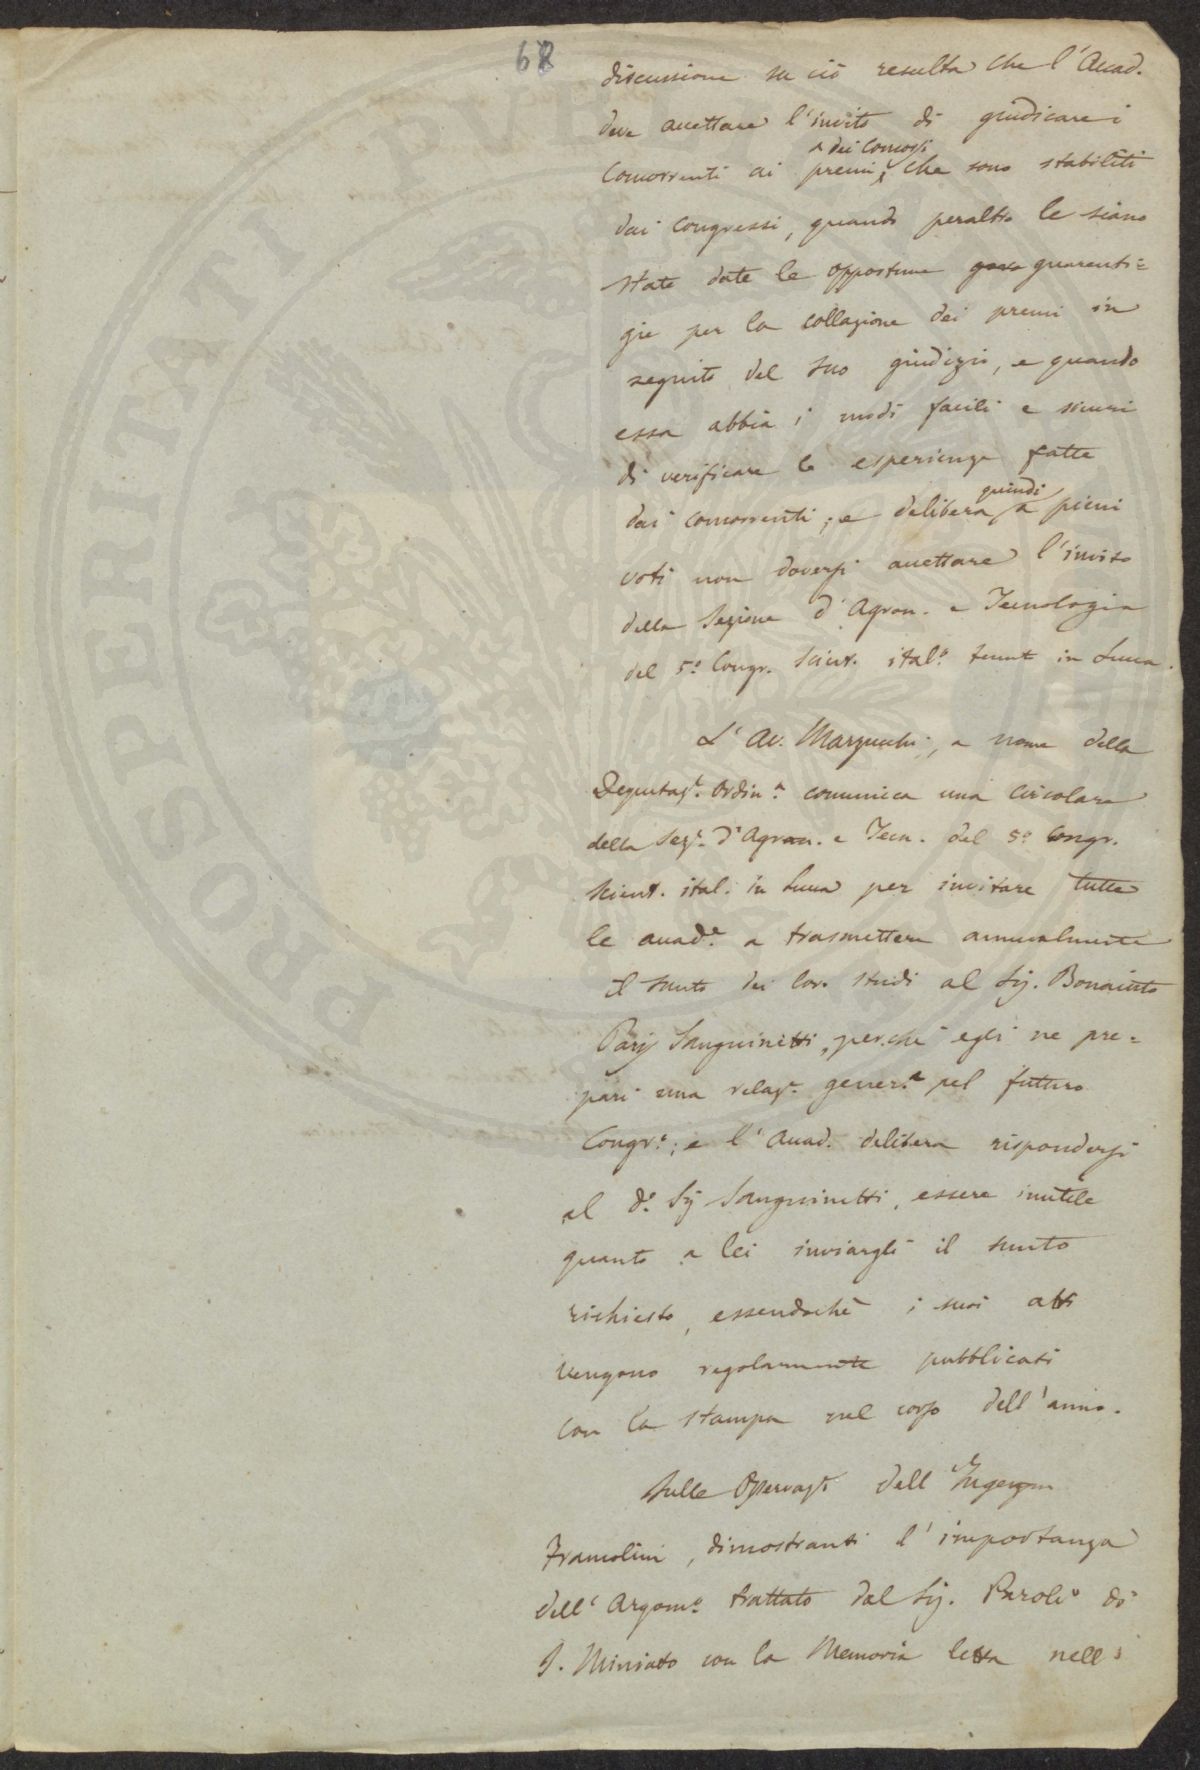 68
discussione su ciò resulta che l'Accad.
deve accettare l'invito di giudicare i
concorrenti ai premi, e dei Concorsi che sono stabiliti
dai Congressi, quando peraltro le siano
state date le opportune guarenti=
gie per la collazione dei premi in
seguito del suo giudizio, e quando
essa abbia i modi facili e sicuri
di verificare le esperienze fatte
dai concorrenti; e delibera quindi a pieni
voti non doversi accettare l'invito
della Sezione d'Agron. e Tecnologia
del 5.° Congr. Scient. ital.° tenut in Lucca.
L'Av. Marzucchi, a nome della
Deputaz.e Ordin.a comunica una circolare
della Sez.e d'Agron. e Tecn. del 5.° Congr.
scient. ital. in Lucca per invitare tutte
le accad.e a trasmettere annualmente
il sunto dei loro studi al Sig. Bonaiuto
Paris Sanguinetti, perché egli ne pre=
pari una relaz.e gener.e pel futuro
Congr.o; e l'Accad. delibera rispondersi
al d.o Sig Sanguinetti, essere inutile
quanto a lei inviargli il sunto
richiesto, essendochè i suoi atti
vengono regolarmente pubblicati
con la stampa nel corso dell'anno.
Sulle Osservaz.i dell'Ingegn
Francolini, dimostranti l'importanza
dell'Argom.o trattato dal Sig. Piroli di
S. Miniato con la Memoria letta nell'